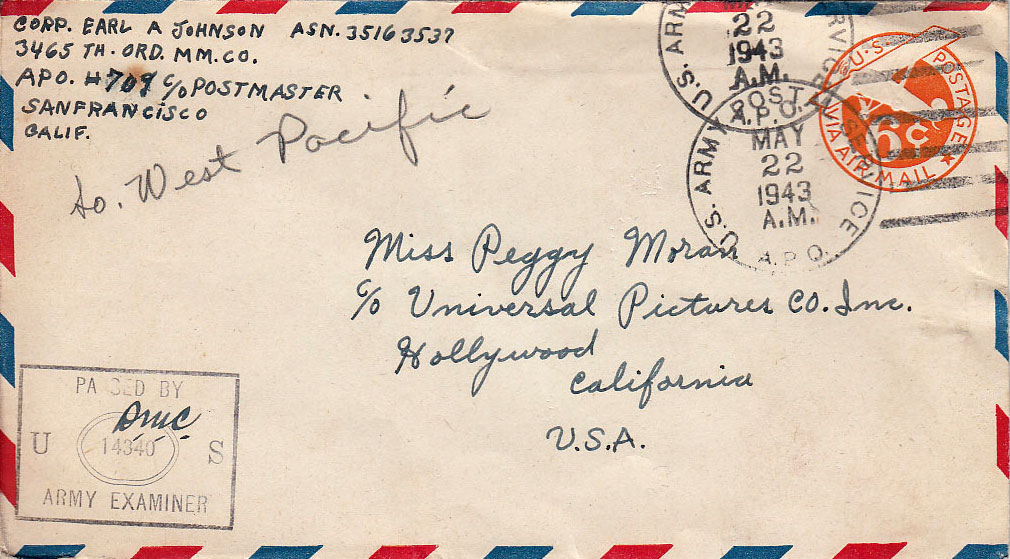 CORP. EARL A JOHNSON ASN. 35163537
3465 TH. ORD. MM. CO.
APO. #709 C/O POSTMASTER
SANFRANCISCO
CALIF.
to. West Pacific
U.S. ARMY POSTAL SERVICE
22
1943
A.M.
A.P.O.
U.S. ARMY POSTAL SERVICE
MAY
22
1943
A.M.
A.P.O.
U.S. POSTAGE
6¢
VIA AIR MAIL
Miss Peggy Moran
c/o Universal Pictures CO. Inc.
Hollywood
California
U.S.A.
PASSED BY
DMC
U 14340 S
ARMY EXAMINER